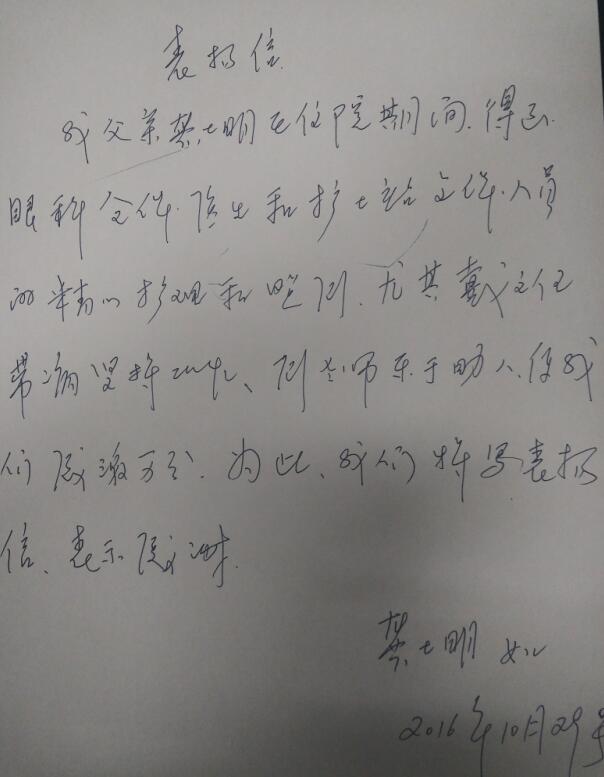 表扬信
我父亲蔡士明在住院期间.得到
眼科全体.医生和护士站全体.人员
的精心护理和照顾.尤其戴主任
带病坚持工作、老师乐于助人.使我
们感激万分.为此、我们特写表扬
信、表示感谢.
蔡士明
2016年10月29号